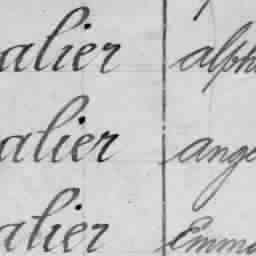 alier alph
alier ange
alier Emma